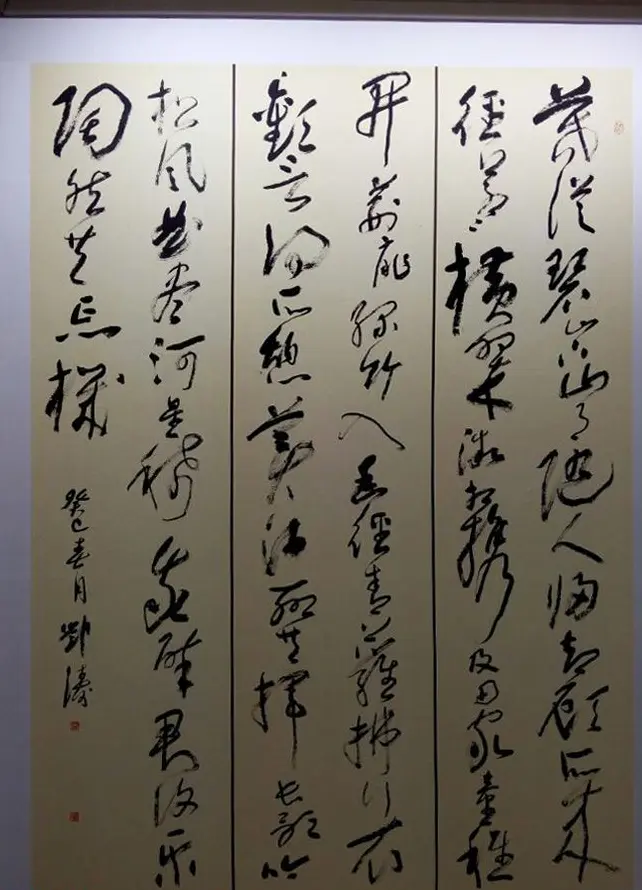 暮從碧山下山月隨人歸却顧所來
徑蒼蒼橫翠微相攜及田家童稚
開荊扉綠竹入幽徑青蘿拂行衣
歡言得所憩美酒聊共揮長歌吟
松風曲盡河星稀我醉君復樂
陶然共忘機
癸巳春月劉濤